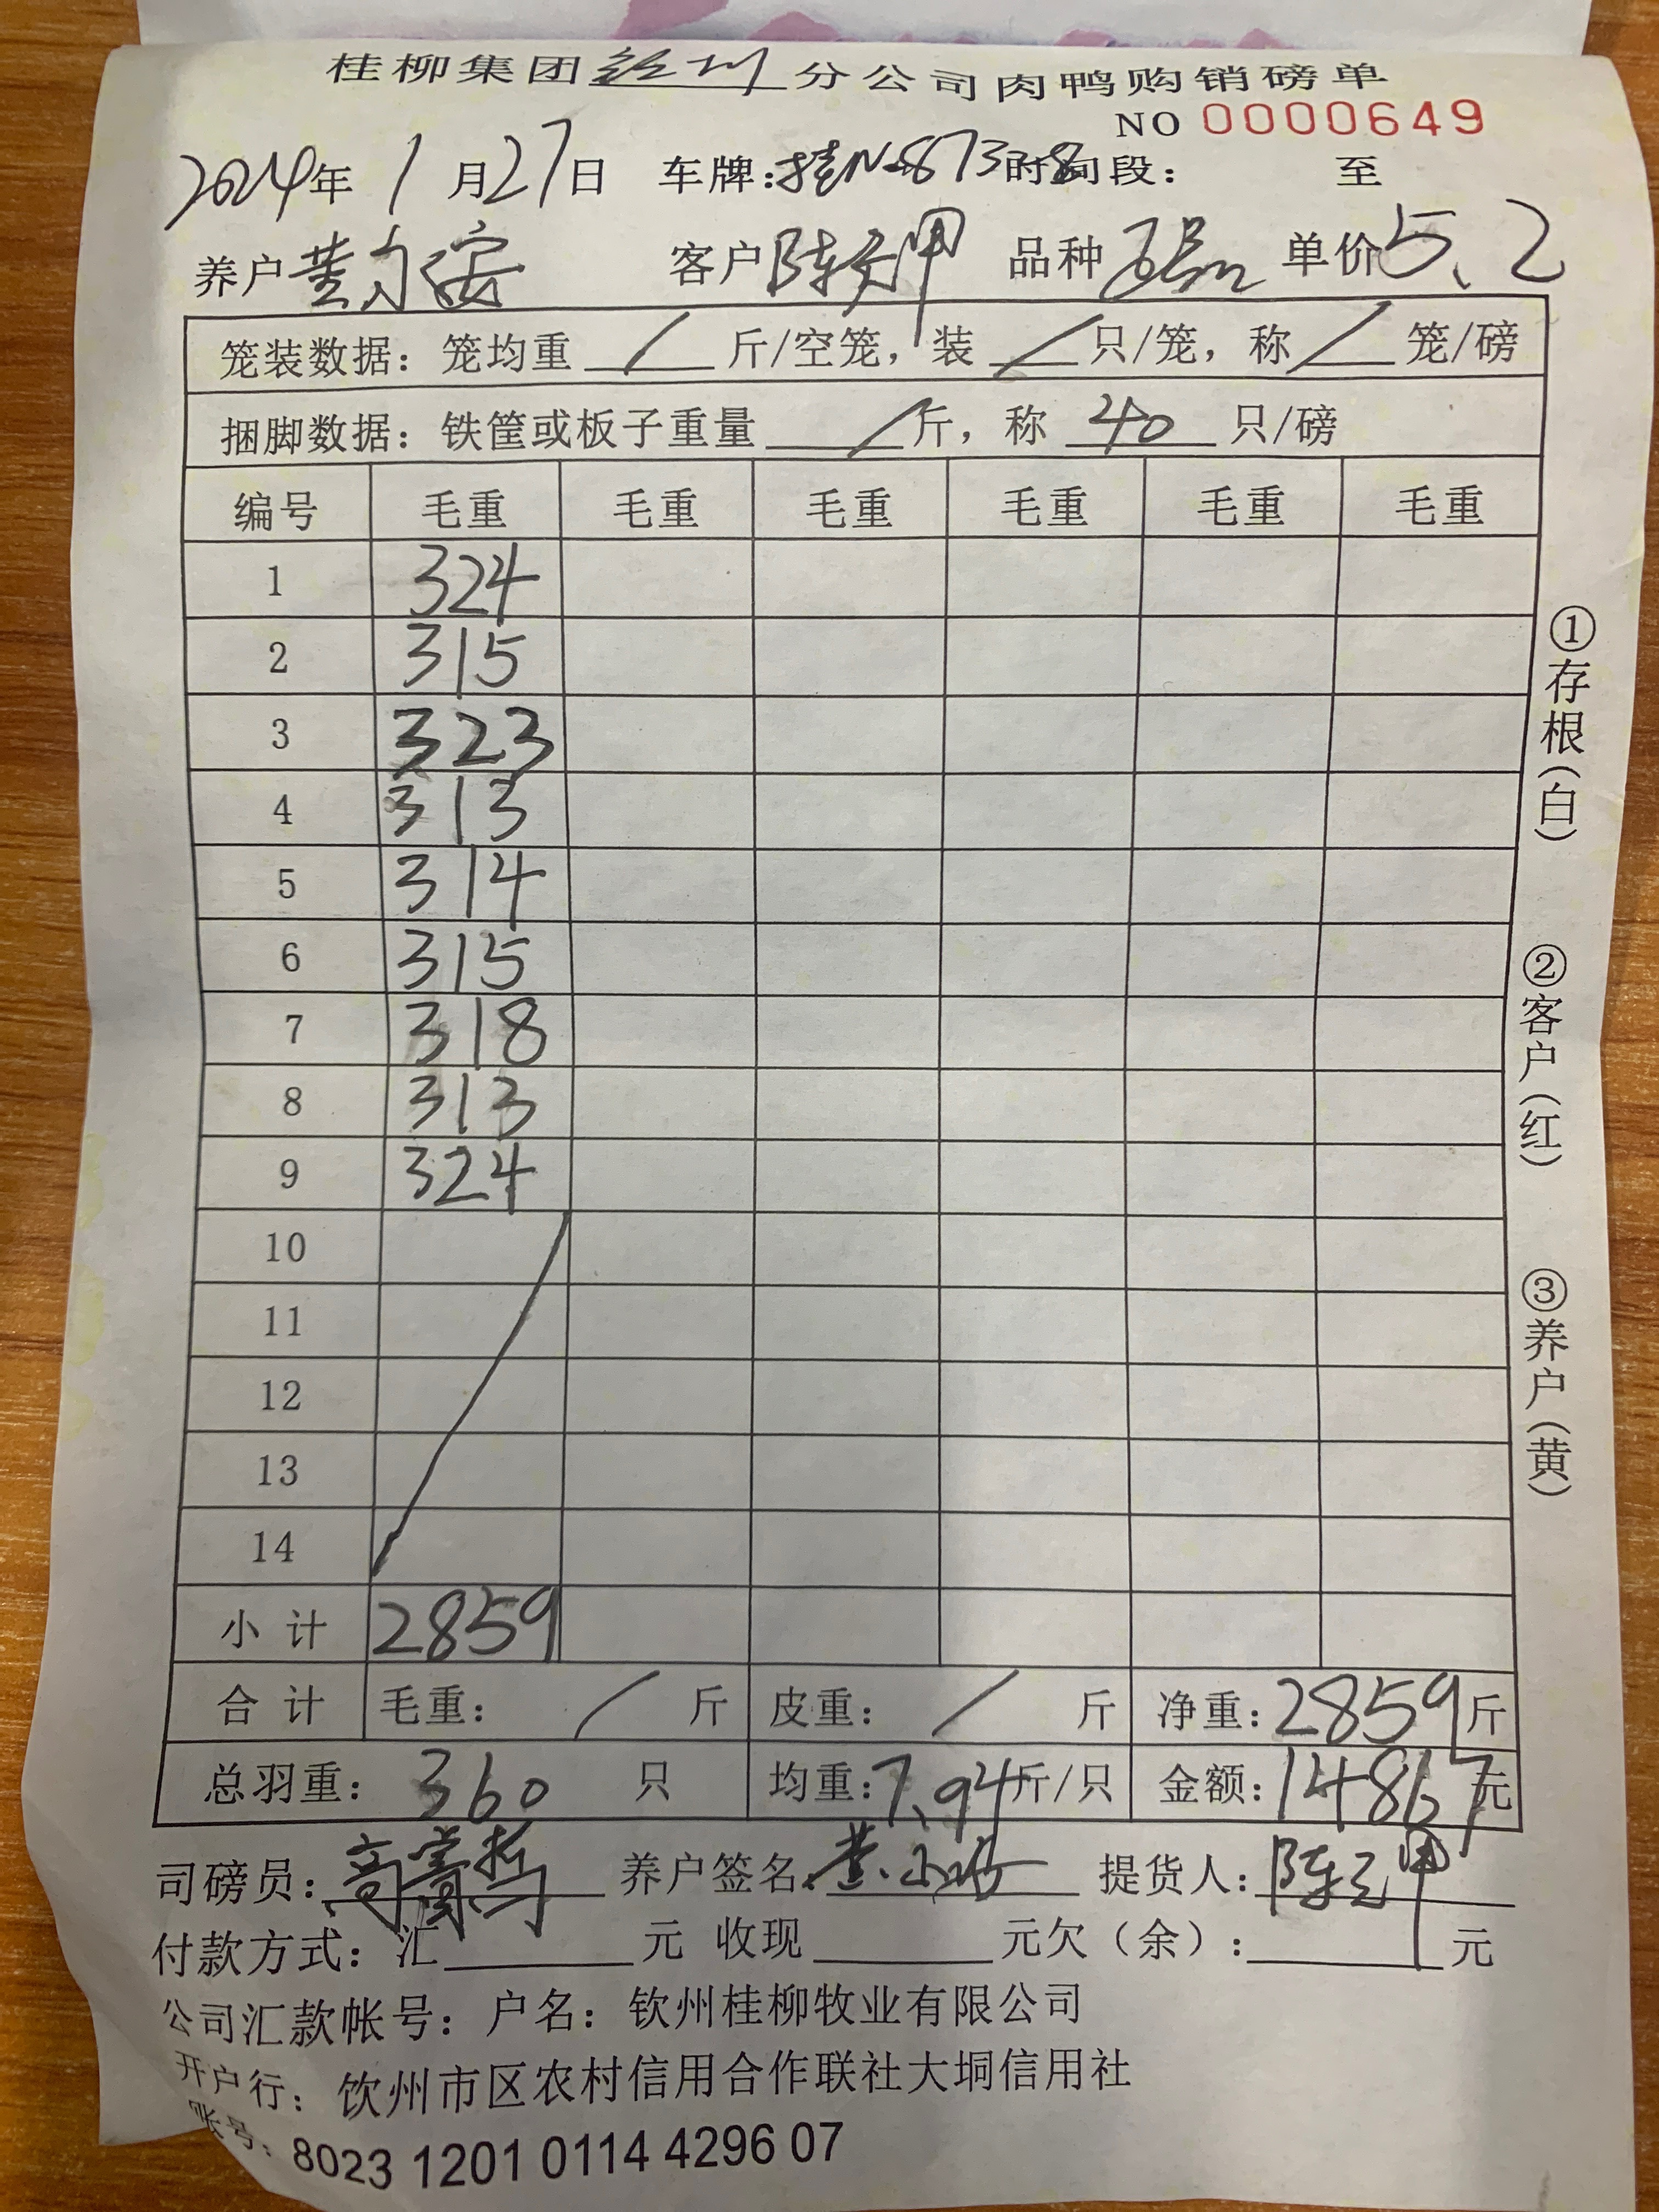 桂柳集团 分公司肉鸭购销磅单
NO 0000649
2024年 1 月27日 车牌:桂N·87338时间段: 至
养户 黄 安 客户 陈 甲 品种 单价5.2
笼装数据: 笼均重 / 斤/空笼, 装 / 只/笼, 称 / 笼/磅
捆脚数据: 铁筐或板子重量 / 斤, 称 40 只/磅
编号 毛重 毛重 毛重 毛重 毛重 毛重
1 324
2 315
3 323
4 313
5 314
6 315
7 318
8 313
9 324
10
11
12
13
14
小计 2859
合计 毛重: / 斤 皮重: / 斤 净重:2859斤
总羽重: 360 只 均重:7.94斤/只 金额:14867元
司磅员: 高 哲 养户签名: 黄 提货人:陈 甲
付款方式: 汇 元 收现 元欠(余): 元
公司汇款帐号: 户名: 钦州桂柳牧业有限公司
开户行: 钦州市区农村信用合作联社大垌信用社
帐号: 8023 1201 0114 4296 07
①存根(白)
②客户(红)
③养户(黄)